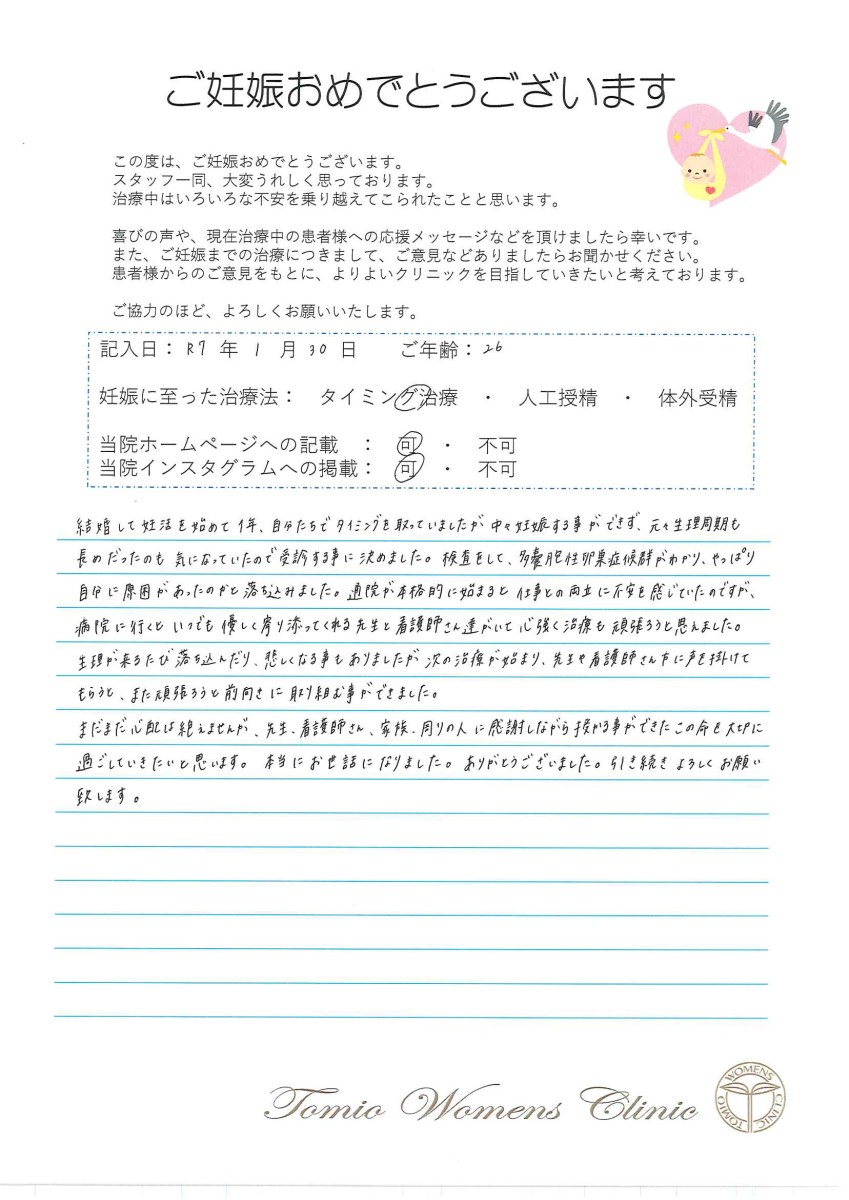 ご妊娠おめでとうございます
この度は、ご妊娠おめでとうございます。
スタッフ一同、大変うれしく思っております。
治療中はいろいろな不安を乗り越えてこられたことと思います。
喜びの声や、現在治療中の患者様への応援メッセージなどを頂けましたら幸いです。
また、ご妊娠までの治療につきまして、ご意見などありましたらお聞かせください。
患者様からのご意見をもとに、よりよいクリニックを目指していきたいと考えております。
ご協力のほど、よろしくお願いいたします。
記入日： R7 年 1 月 30 日　ご年齢： 26
妊娠に至った治療法：　タイミング治療　・　人工授精　・　体外受精
当院ホームページへの記載　：　可　・　不可
当院インスタグラムへの掲載：　可　・　不可
結婚して妊活を始めて1年、自分たちでタイミングを取っていましたが中々妊娠する事ができず、元々生理周期も
長めだったのも気になっていたので受診する事に決めました。検査をして、多嚢胞性卵巣症候群がわかり、やっぱり
自分に原因があったのかと落ち込みました。通院が本格的に始まると仕事との両立に不安を感じていたのですが、
病院に行くといつでも優しく寄り添ってくれる先生と看護師さん達がいて心強く治療も頑張ろうと思えました。
生理が来るたび落ち込んだり、悲しくなる事もありましたが次の治療が始まり、先生や看護師さん方に声を掛けて
もらうと、また頑張ろうと前向きに取り組む事ができました。
まだまだ心配は絶えませんが、先生・看護師さん、家族・周りの人に感謝しながら授かる事ができたこの命を大切に
過ごしていきたいと思います。本当にお世話になりました。ありがとうございました。引き続きよろしくお願い
致します。
Tomio Womens Clinic
WOMENS CLINIC TOMIO